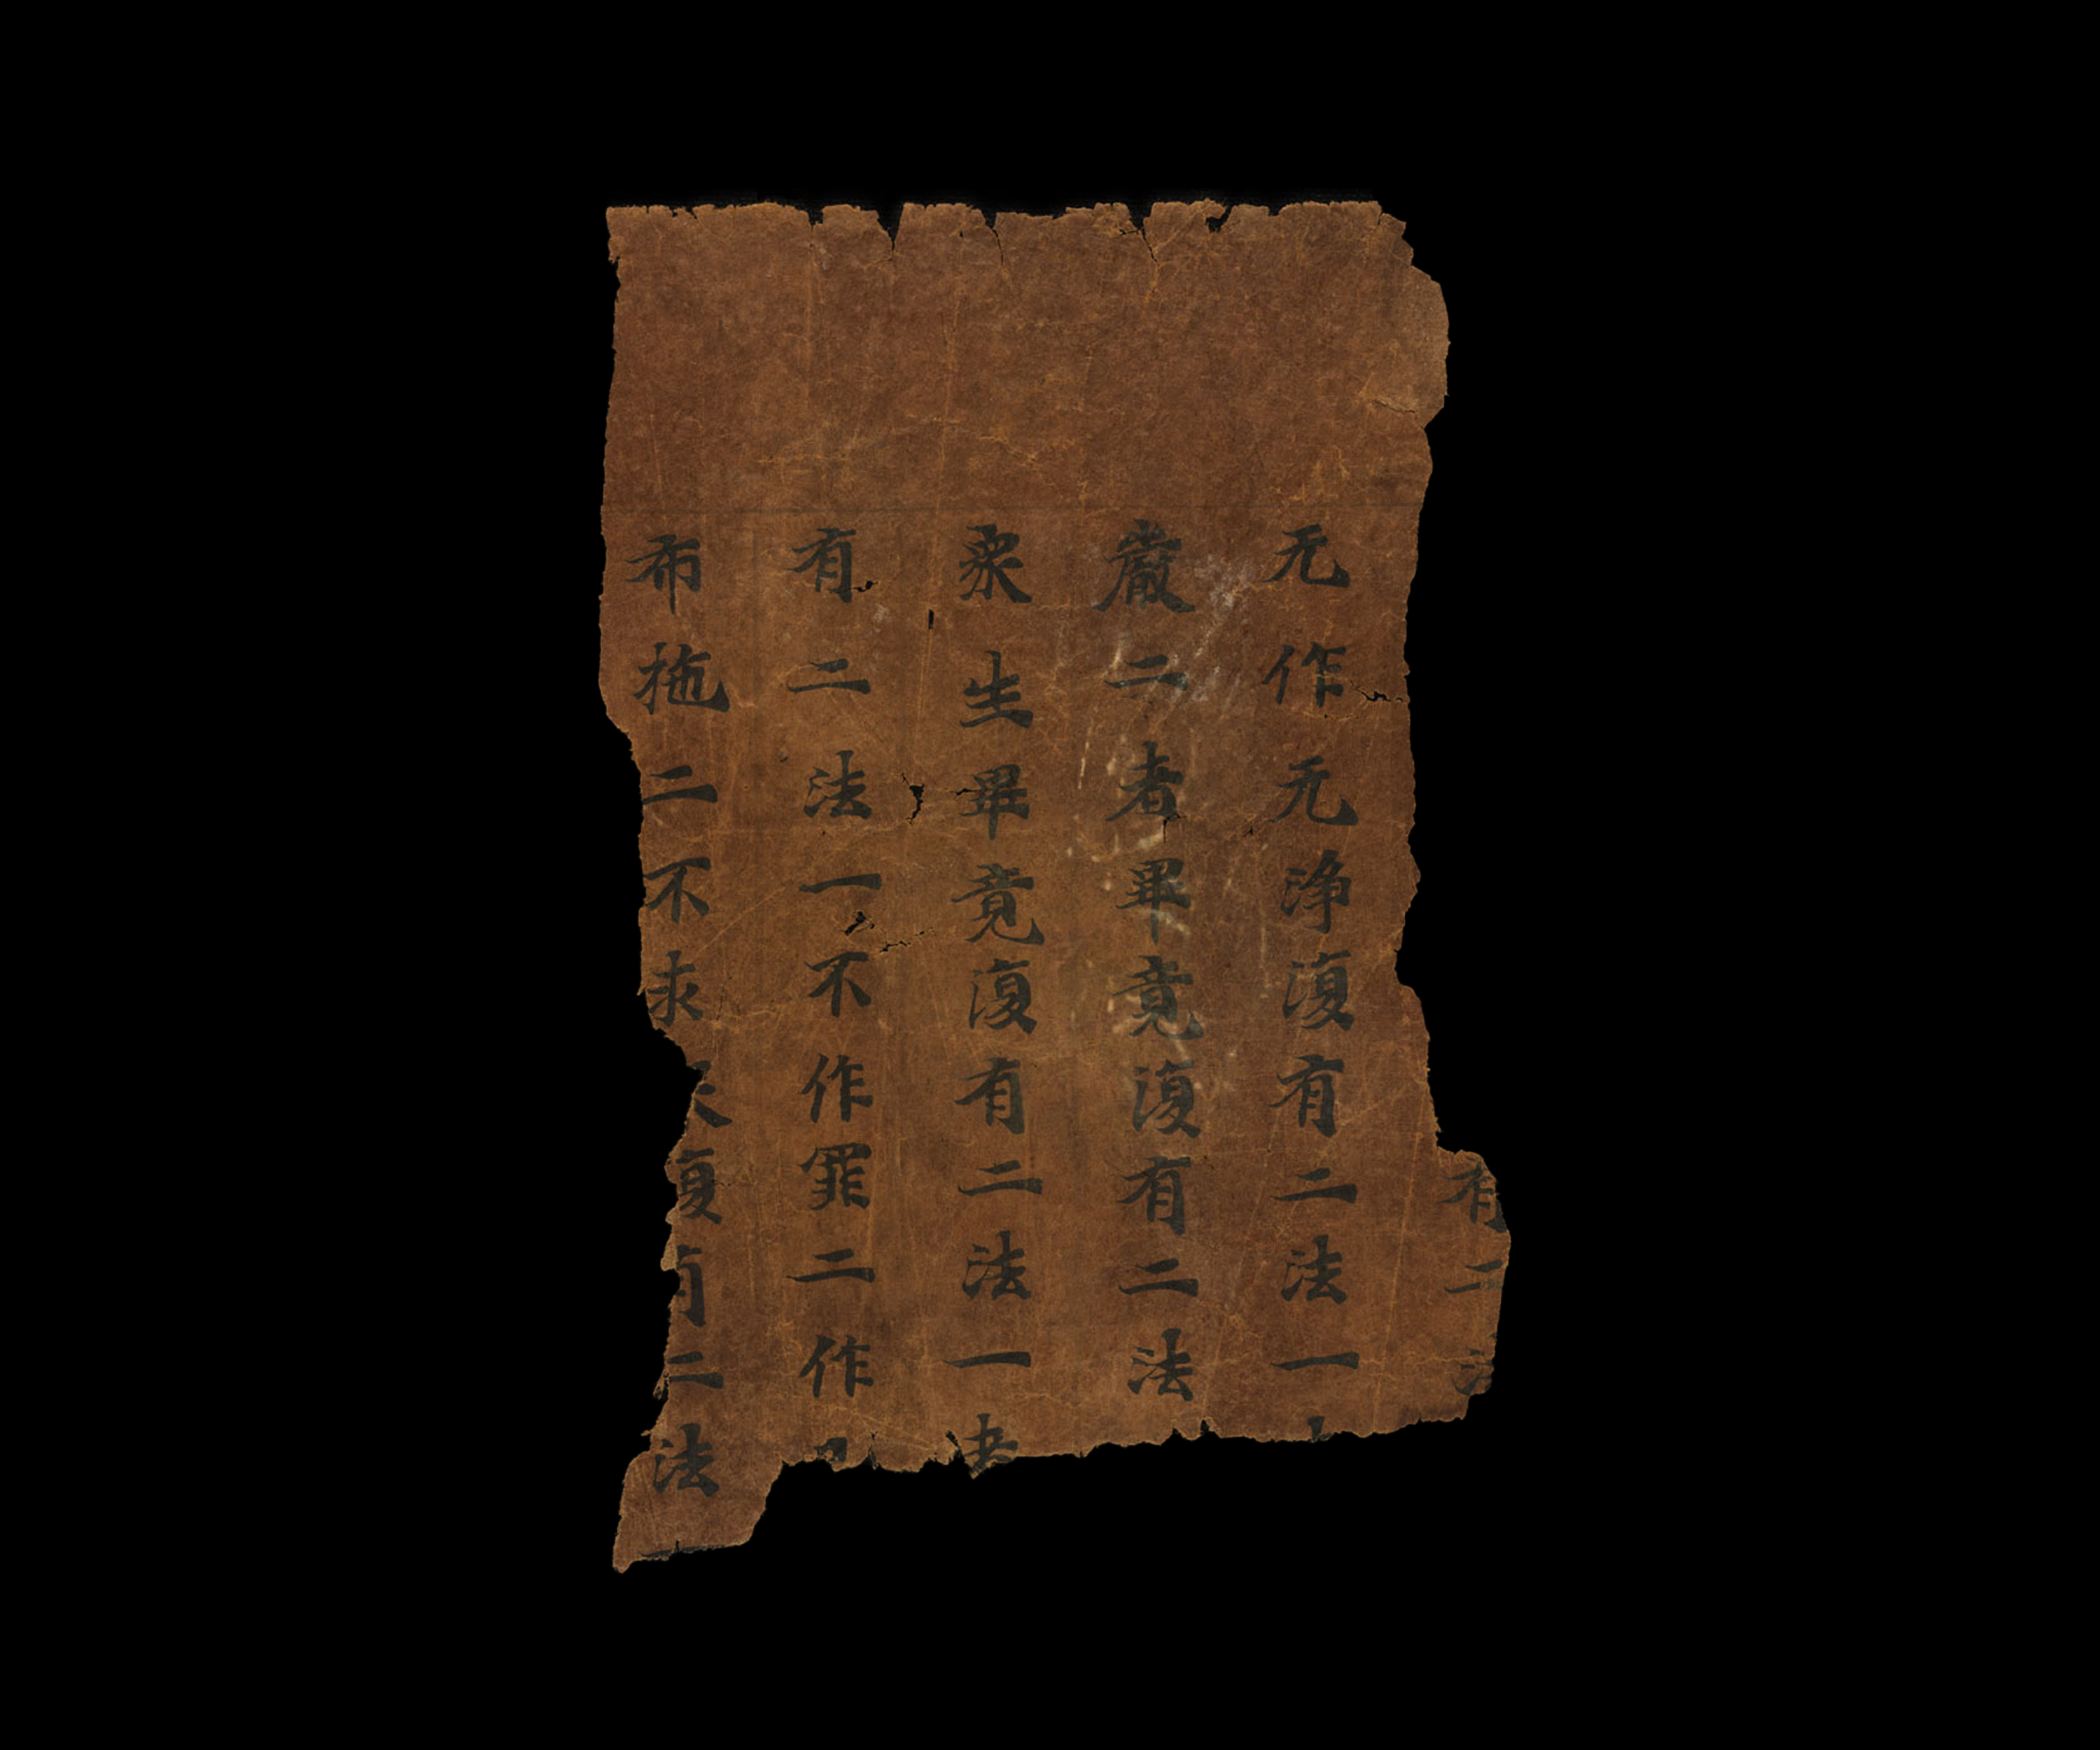 有二法
无作无净復有二法一
嚴二者畢竟復有二法
眾生畢竟復有二法一
有二法一不作罪二作
布施二不求復有二法